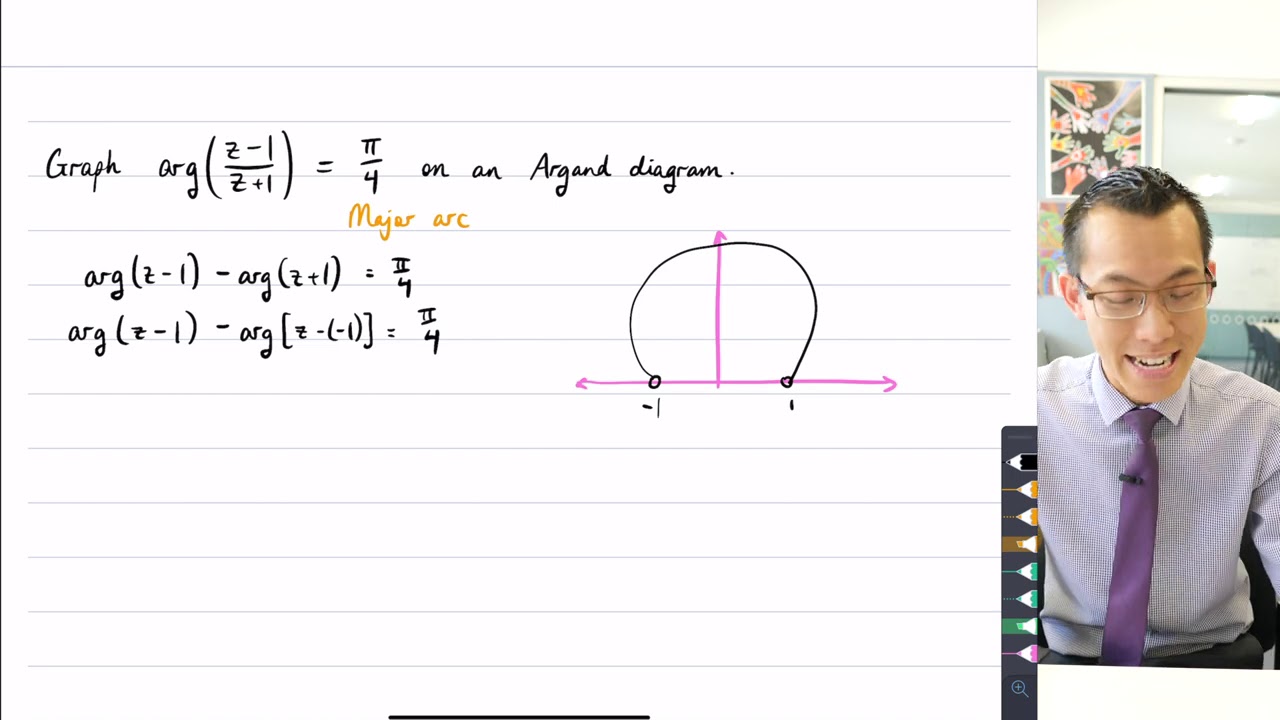 Graph arg((z-1)/(z+1)) = π/4 on an Argand diagram.
Major arc
arg(z-1) - arg(z+1) = π/4
arg(z-1) - arg[z-(-1)] = π/4
-1
1